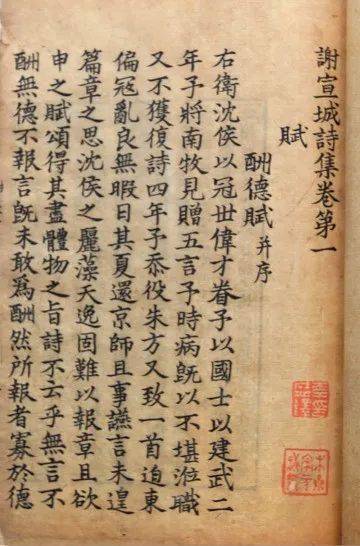 謝宣城詩集卷第一
賦
酬德賦并序
右衛沈侯以冠世偉才眷予以國士以建武二
年予將南牧見贈五言予時病旣以不堪涖職
又不獲復詩四年予忝役朱方又致一首迫東
偏冦亂良無暇日其夏還京師且事讌言未遑
篇章之思沈侯之麗藻天逸固難以報章且欲
申之賦頌得其盡體物之旨詩不云乎無言不
酬無德不報言旣未敢爲酬然所報者寡於德